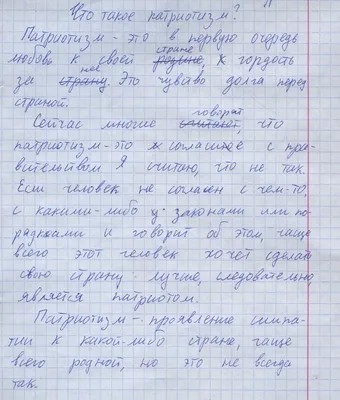 Что такое патриотизм?
Патриотизм - это в первую очередь
любовь к своей родине, стране к гордость
за страну, нее Это чувство долга перед
страной.
Сейчас многие считают, говорят что
патриотизм - это согласие с пра-
вительством Я считаю, что не так.
Если человек не согласен с чем-то,
с какими-либо законами или по-
рядками и говорит об этом, чаще
всего этот человек хочет сделать
свою страну лучше, следовательно,
является патриотом.
Патриотизм - проявление симпа-
тии к какой-либо стране, чаще
всего родной, но это не всегда
так.